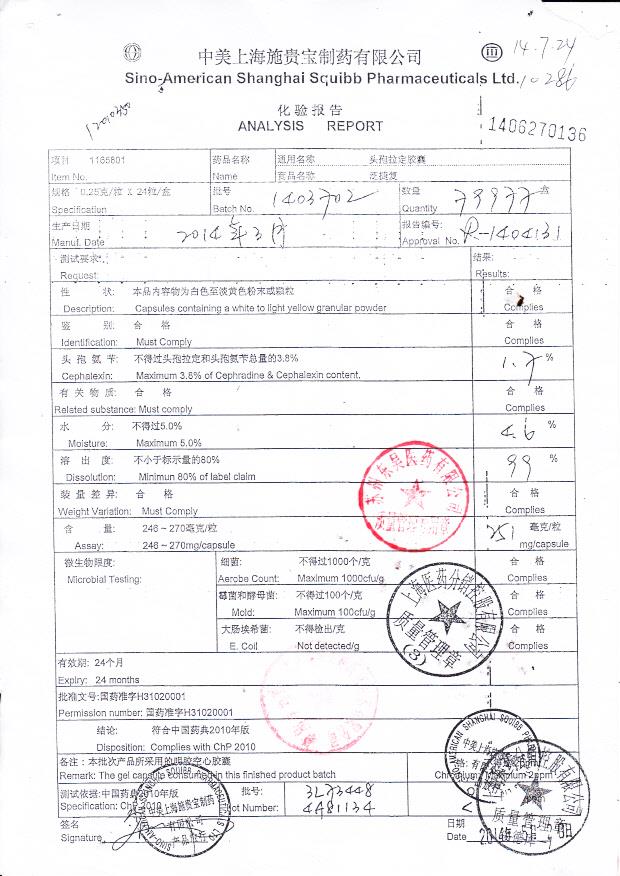 中美上海施贵宝制药有限公司
Sino-American Shanghai Squibb Pharmaceuticals Ltd.
14.7.24
10286
化验报告
ANALYSIS REPORT
1406270136
项目 1165801 药品名称 通用名称 头孢拉定胶囊
Item No. Name 商品名称 泛捷复
规格 0.25克/粒 X 24粒/盒 批号 1403702 数量 79977 盒
Specification Batch No. Quantity
生产日期 2014年3月 报告编号:
Manuf. Date Approval No. R-1404131
测试要求: 结果:
Request: Results:
性 状: 本品内容物为白色至淡黄色粉末或颗粒 合 格
Description: Capsules containing a white to light yellow granular powder Complies
鉴 别: 合 格 合 格
Identification: Must Comply Complies
头孢氨苄: 不得过头孢拉定和头孢氨苄总量的3.8% 1.7 %
Cephalexin: Maximum 3.8% of Cephradine & Cephalexin content.
有关物质: 合 格 合 格
Related substance: Must comply Complies
水 分: 不得过5.0% 4.6 %
Moisture: Maximum 5.0%
溶出度: 不小于标示量的80% 99 %
Dissolution: Minimun 80% of label claim
装量差异: 合 格 合 格
Weight Variation: Must Comply Complies
含 量: 246~270毫克/粒 251 毫克/粒
Assay: 246~270mg/capsule mg/capsule
微生物限度: 细菌: 不得过1000个/克 合 格
Microbial Testing: Aerobe Count: Maximum 1000cfu/g Complies
霉菌和酵母菌: 不得过100个/克 合 格
Mold: Maximum 100cfu/g Complies
大肠埃希菌: 不得检出/克 合 格
E. Coli Not detected/g Complies
有效期: 24个月
Expiry: 24 months
批准文号:国药准字H31020001
Permission number: 国药准字H31020001
结论: 符合中国药典2010年版
Disposition: Complies with ChP 2010
备注:本批次产品所采用的明胶空心胶囊
Remark: The gel capsule consumed in this finished product batch
测试依据:中国药典2010年版 批号: 3L73448
Specification: ChP 2010 Lot Number: 4A81134
签名 日期
Signature Date
苏州东吴医药有限公司
质量管理专用章
上海医药分销控股有限公司
质量管理章
(3)
SINO-AMERICAN SHANGHAI SQUIBB PHARMACEUTICALS LTD
中美上海施贵宝制药
有限公司
质量管理章